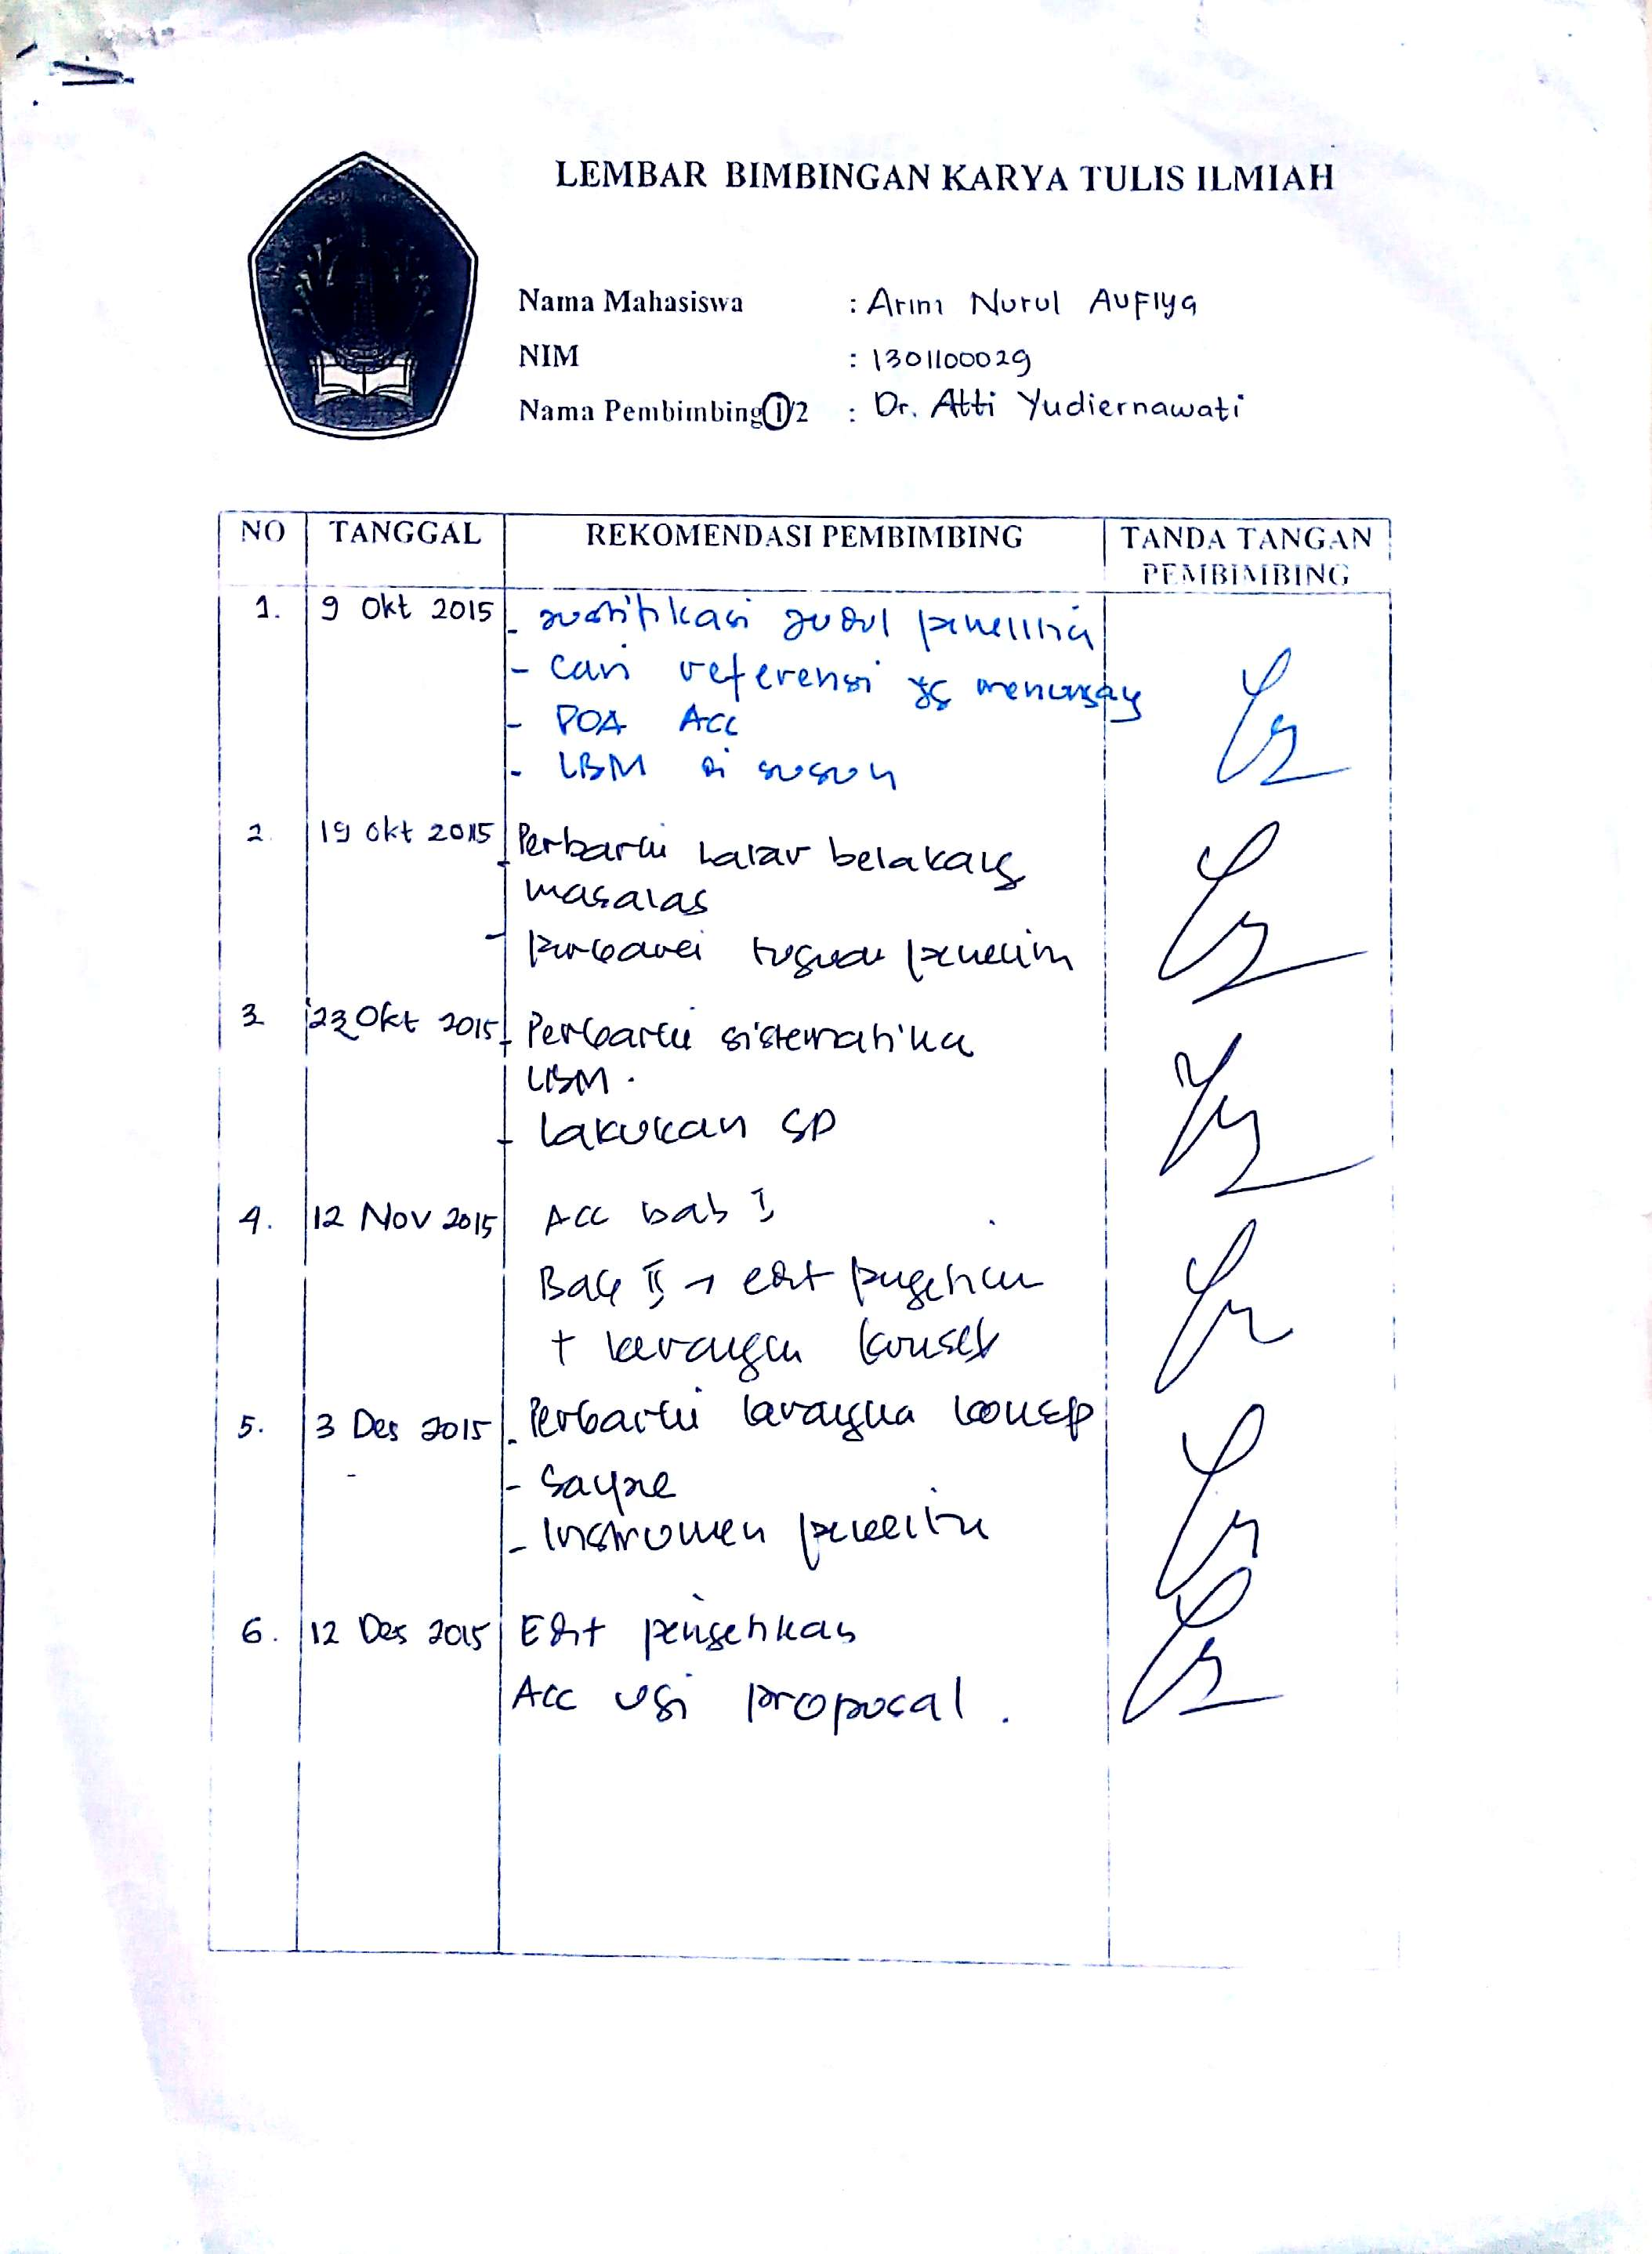 LEMBAR BIMBINGAN KARYA TULIS ILMIAH
Nama Mahasiswa : Arini Nurul Aufiya
NIM : 1301100029
Nama Pembimbing 1/2 : Dr. Atti Yudiernawati
NO TANGGAL REKOMENDASI PEMBIMBING TANDA TANGAN
PEMBIMBING
1. 9 Okt 2015 - Justifikasi judul
- Cari referensi yg
- POA Acc
- LBM di susun
2. 19 Okt 2015 - Perbaiki Latar belakang
masalah
- perbaiki tujuan
3 23 Okt 2015 - Perbaiki sistematika
LBM.
- Lakukan SP
4. 12 Nov 2015 Acc bab I
Bab II → edit
+ kerangka konsep
5. 3 Des 2015 - Perbaiki kerangka konsep
-
- Instrumen
6. 12 Des 2015 Edit pengetikan
Acc uji proposal.